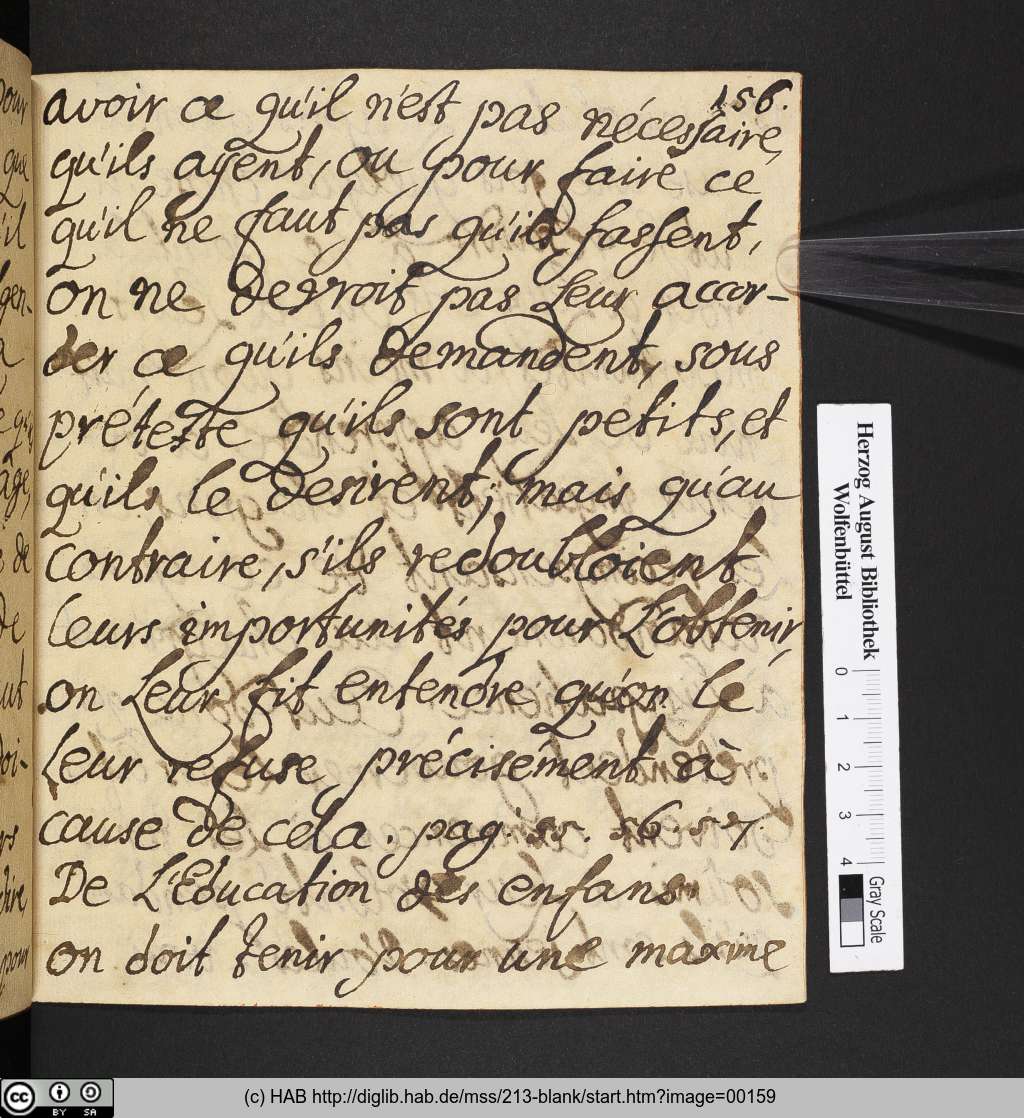 156.
avoir ce qu'il n'est pas nécessaire,
qu'ils ayent, ou pour faire ce
qu'il ne faut pas qu'ils fassent,
on ne devroit pas Leur accor-
der ce qu'ils demandent, sous
prétexte qu'ils sont petits, et
qu'ils le desirent; mais qu'au
contraire, s'ils redoubloient
Leurs importunités pour L'obtenir,
on Leur fit entendre qu'on le
Leur refuse précisément à
cause de cela. pag. 55. 56. 57.
De L'Education des enfans
on doit tenir pour une maxime
Herzog August Bibliothek
Wolfenbüttel
0 1 2 3 4
Gray Scale
(c) HAB http://diglib.hab.de/mss/213-blank/start.htm?image=00159
cc BY SA